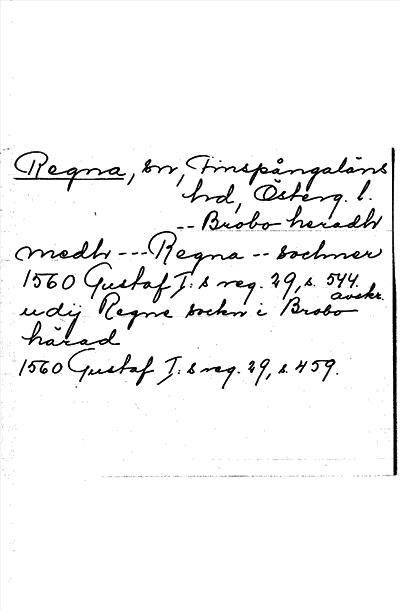 Regna, sn, Finspångaläns
hrd, Österg. l.
-- Brobo heradh
medh --- Regna -- sochner
1560 Gustaf I:s reg. 29, s. 544.
avskr.
udij Regne sockn i Brobo
härad
1560 Gustaf I:s reg. 29, s. 459.